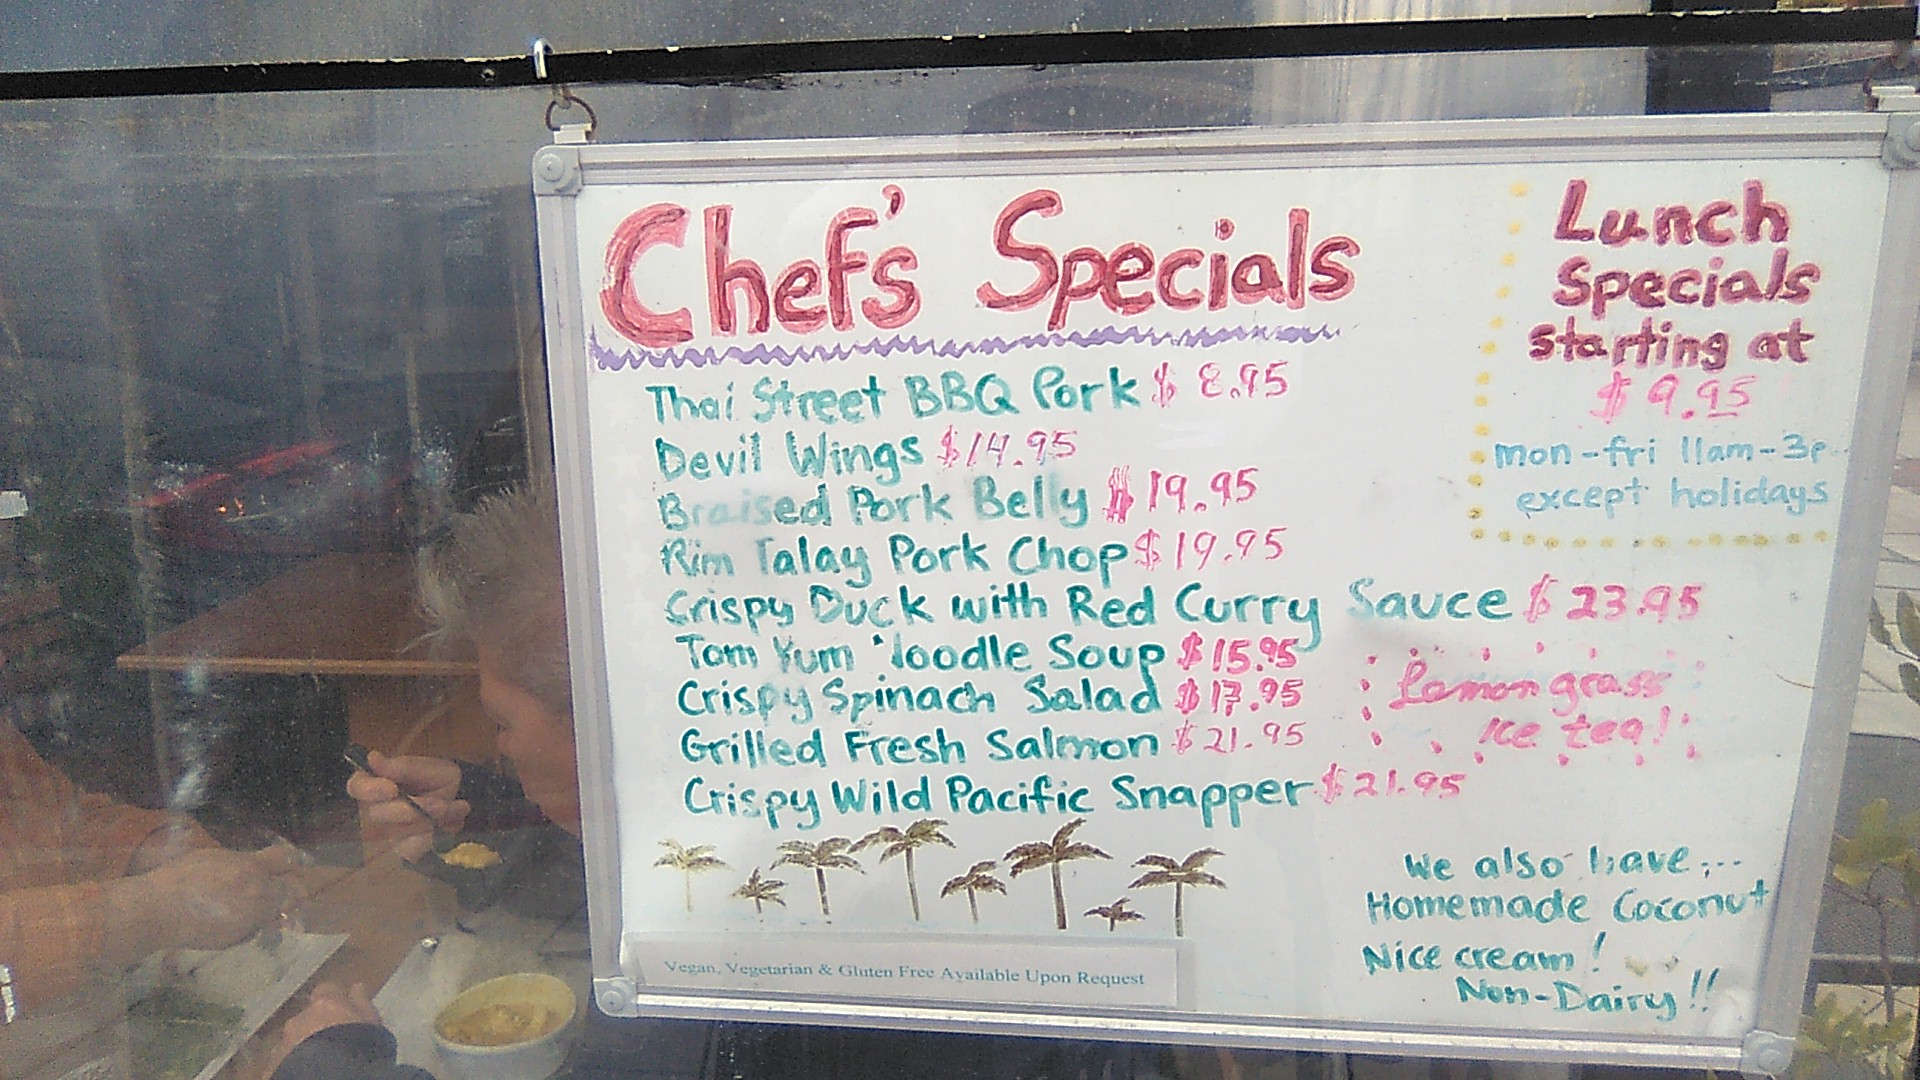 Chef's Specials
Thai Street BBQ Pork $ 8.95
Devil Wings $14.95
Braised Pork Belly $19.95
Rim Talay Pork Chop $19.95
Crispy Duck with Red Curry Sauce $ 23.95
Tom Yum Noodle Soup $15.95
Crispy Spinach Salad $17.95
Grilled Fresh Salmon $21.95
Crispy Wild Pacific Snapper $21.95
Lunch
Specials
starting at
$ 9.95
mon-fri 11am-3p
except holidays
Lemongrass
Ice tea!
We also have...
Homemade Coconut
Nice cream!
Non-Dairy!!
Vegan, Vegetarian & Gluten Free Available Upon Request